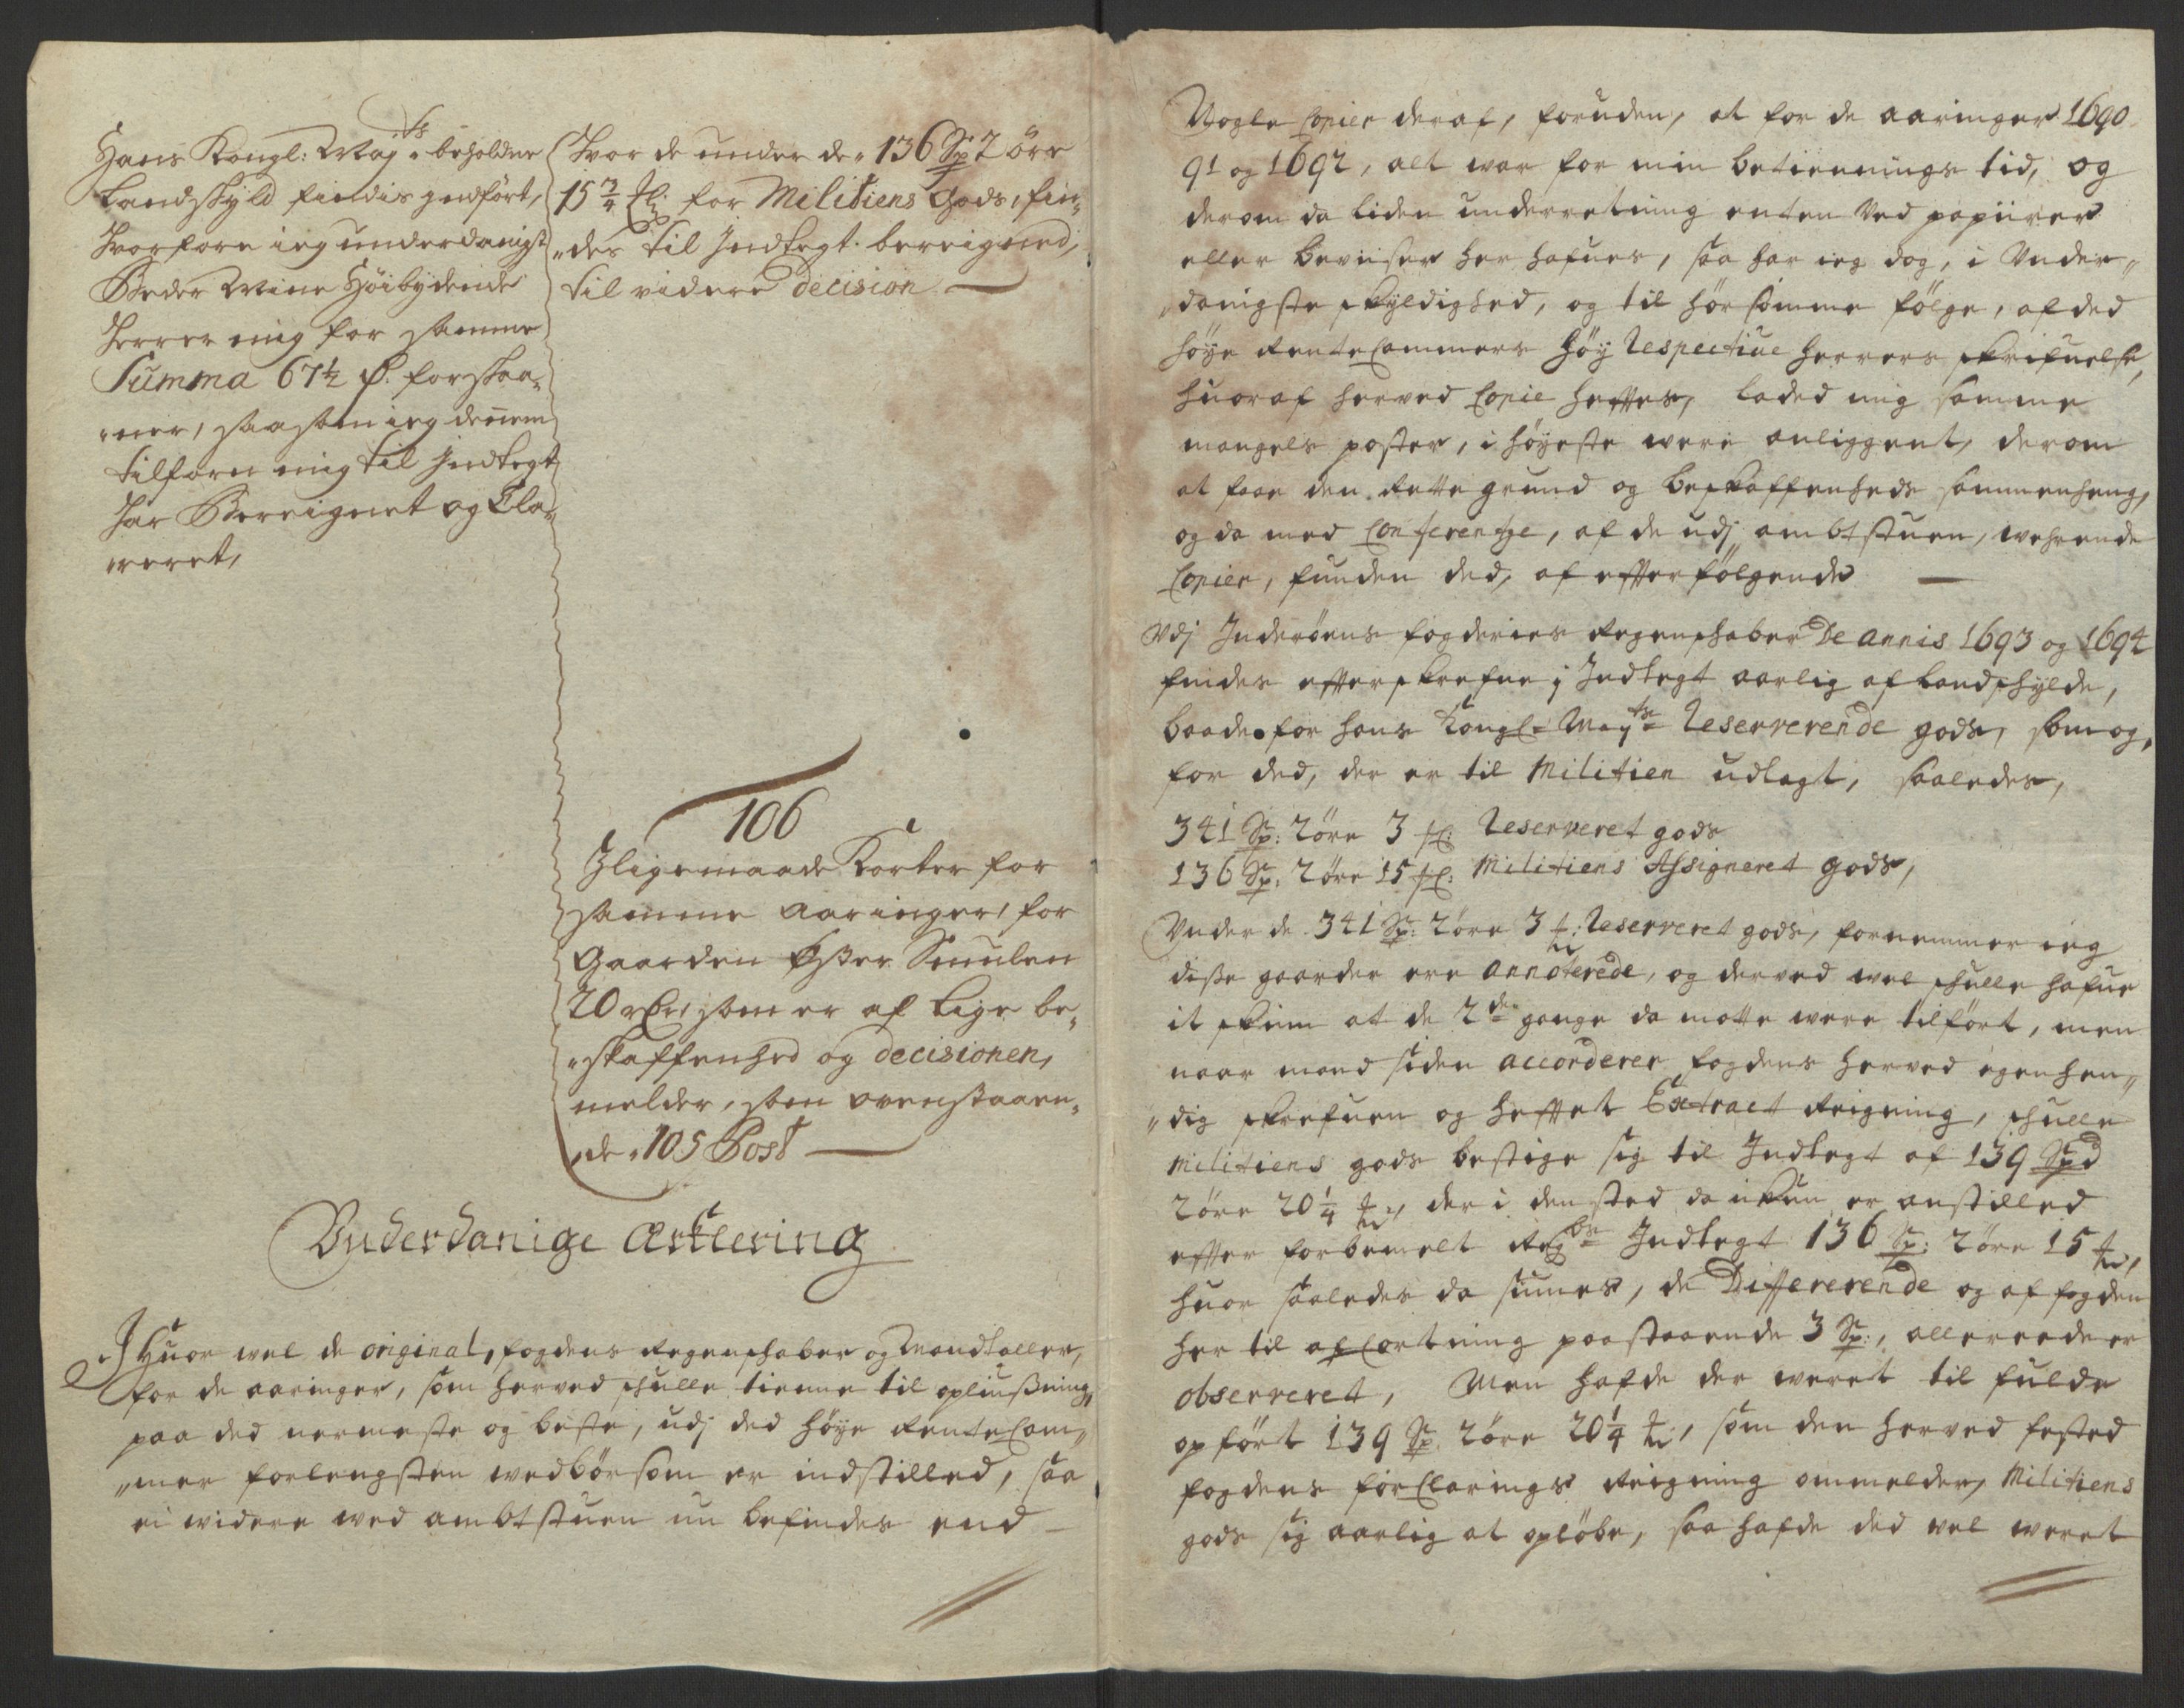 Hans Kongl: May:ts beholdne
Landskyld findis indført,
Hvorfore ieg underdanigst
Beder Mine Høibydende
Herrer mig for samme
Summa 67½ D. forskaa-
"ner, saasom ieg dennem
tilforn mig til Indtegt
har Bereignet og Cla-
"reret,
Hvor de under de 136 Sp 2 öre
15 3/4 for Militiens Gods, fin-
"des til Indtegt bereigned,
til videre decision —
106
Jligemaade Korter for
samme Aaringer, for
Gaarden Østen Snuulen
20 som er af lige be-
"skaffenhed og decisionen,
melder, som ovenstaaen-
"de 105 Post —
Underdanige Erklering
I Huor vel de original, fogdens Regenskaber og Mandtaller,
for de aaringer, som herved skulle tienne til opliußning,
paa ded nermeste og beste, udj ded høye RenteCam-
"mer forlengsten vedbørsom er indstilled, saa
ei videre ved ambtstuen nu befindes end —
Nogle Copier deraf, foruden, at for de aaringer 1690
91 og 1692, alt war for min betiennings tid, og
derom da liden underretning enten ved papiirer
eller beviiser her hafues, saa har ieg dog, i Under-
"danigste skyldighed, og til hørsomme følge, af ded
høye RenteCammers høy Respective herrers skrifuelse,
huoraf herved Copie heftes, laded mig samme
mangels poster, i høyeste were anliggent, derom
at faae den rette grund og beskaffenheds sammenheng,
og da med Conferentze, af de udj ambtstuen, wehrende
Copier, funden ded, af efterfølgende —
Udj Inderøens fogderies Regenskaber De Annis 1693 og 1694
findes efterskrefne i Indtegt aarlig af Landskylde,
baade for hans Kongl: May:ts Reserverende gods, som og,
for ded, der er til Militien udlagt, saaledes,
341 Sp: 2 öre 3 Reserveret gods
136 Sp: 2 öre 15 Militiens Assigneret gods,
Under de 341 Sp: 2 öre 3 Reserveret gods, fornemmer ieg
disse gaarder ere annoterede, og derved vel skulle hafue
it skinn at de 2de gange da motte were tilført, men
naar mand siden accorderer fogdens herved egenhen-
"dig skrefuen og heftet Extract Reigning, skulle
Militiens gods bestige sig til Indtegt af 139 Spd
2 öre 20 1/4, der i den sted da ikkun er anstilled
efter forbemelt Indtegt 136 Sp: 2 öre 15
huor saaledes da siunes, de Differerende og af fogden
her til afCortning paastaaende 3 Sp:, allereede er
observeret, Men hafde der weret til fulde
opført 139 Sp. 2 öre 20 1/4, som den herved fested
fogdens forClarings Reigning ommelder, Militiens
gods sig aarlig at opløbe, saa hafde ded vel weret